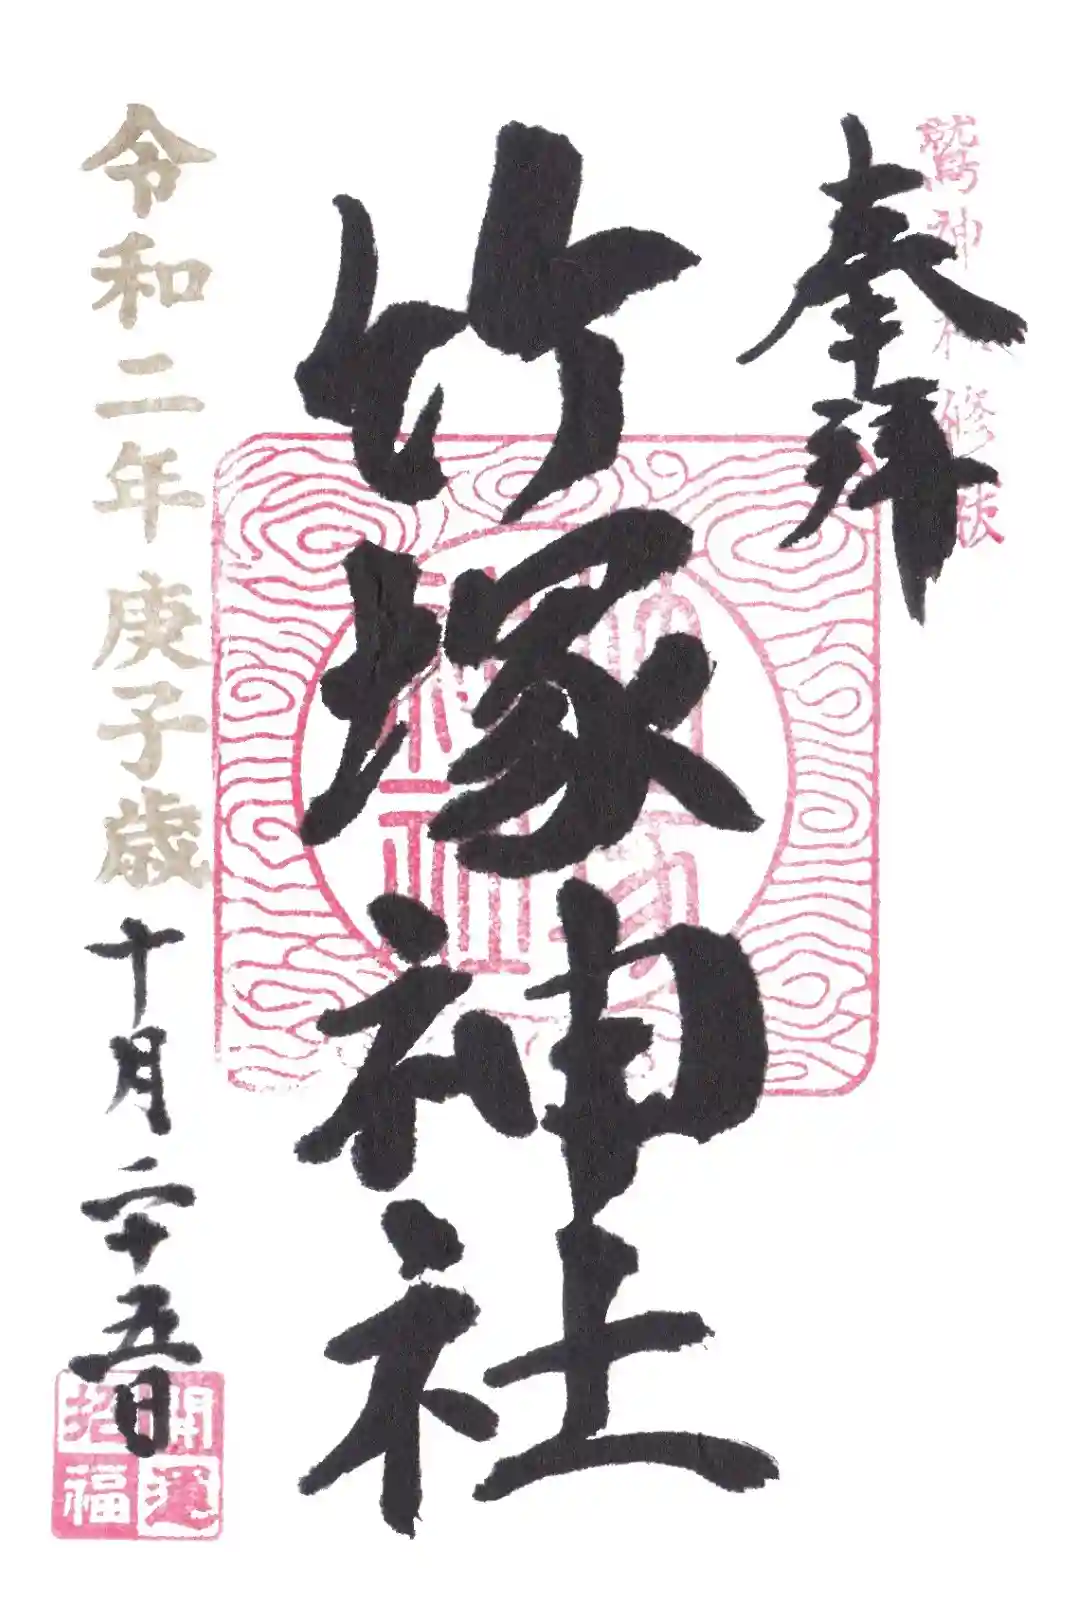 鷲神社 修祓
奉拝
竹塚神社
令和二年庚子歳十月二十五日
開運
招福